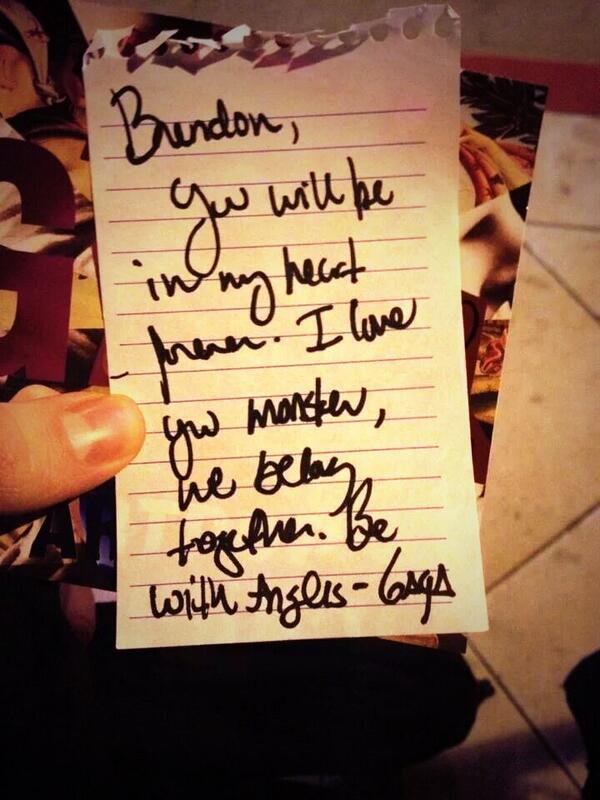 Brendon,
You will be
in my heart
forever. I love
you monster,
we belong
together. Be
with Angles - Gaga